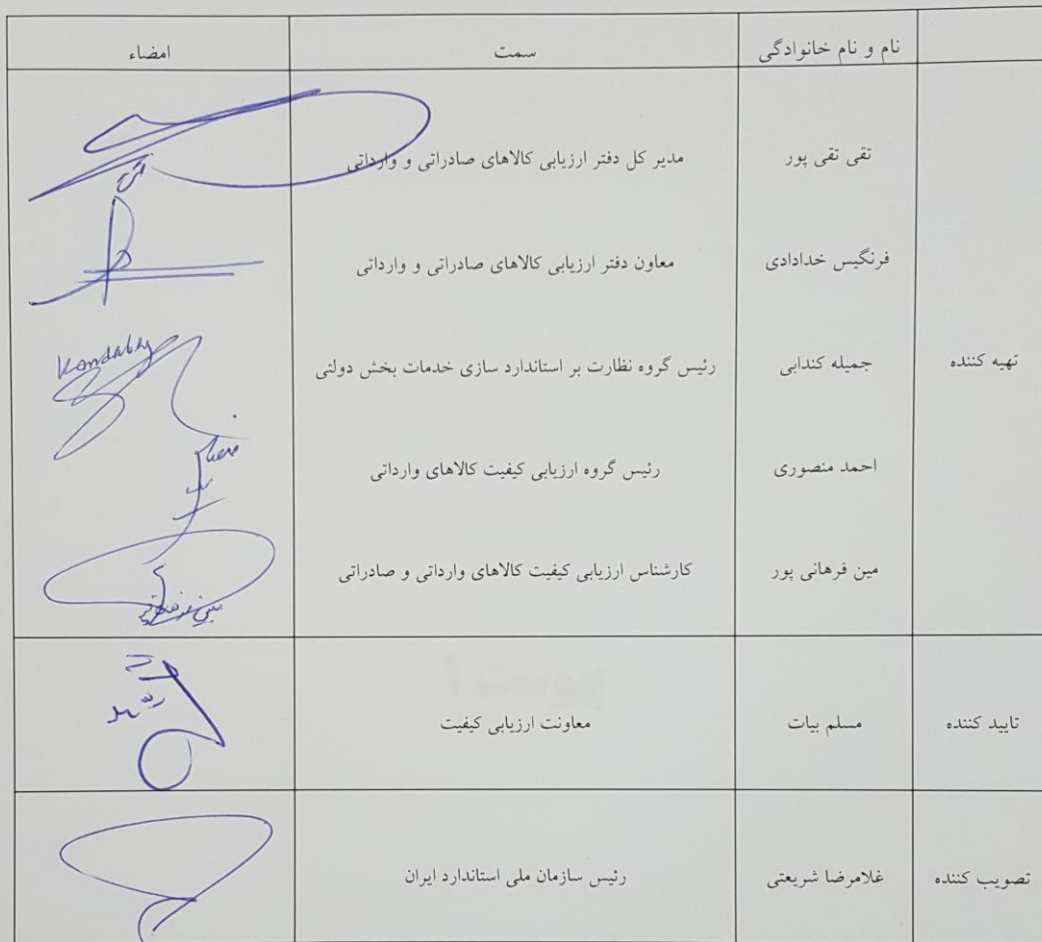 نام و نام خانوادگی سمت امضاء
تقی تقی پور مدیر کل دفتر ارزیابی کالاهای صادراتی و وارداتی
فرنگیس خدادادی معاون دفتر ارزیابی کالاهای صادراتی و وارداتی
تهیه کننده جمیله کندابی رئیس گروه نظارت بر استاندارد سازی خدمات بخش دولتی
احمد منصوری رئیس گروه ارزیابی کیفیت کالاهای وارداتی
مین فرهانی پور کارشناس ارزیابی کیفیت کالاهای وارداتی و صادراتی
تایید کننده مسلم بیات معاونت ارزیابی کیفیت
تصویب کننده غلامرضا شریعتی رئیس سازمان ملی استاندارد ایران